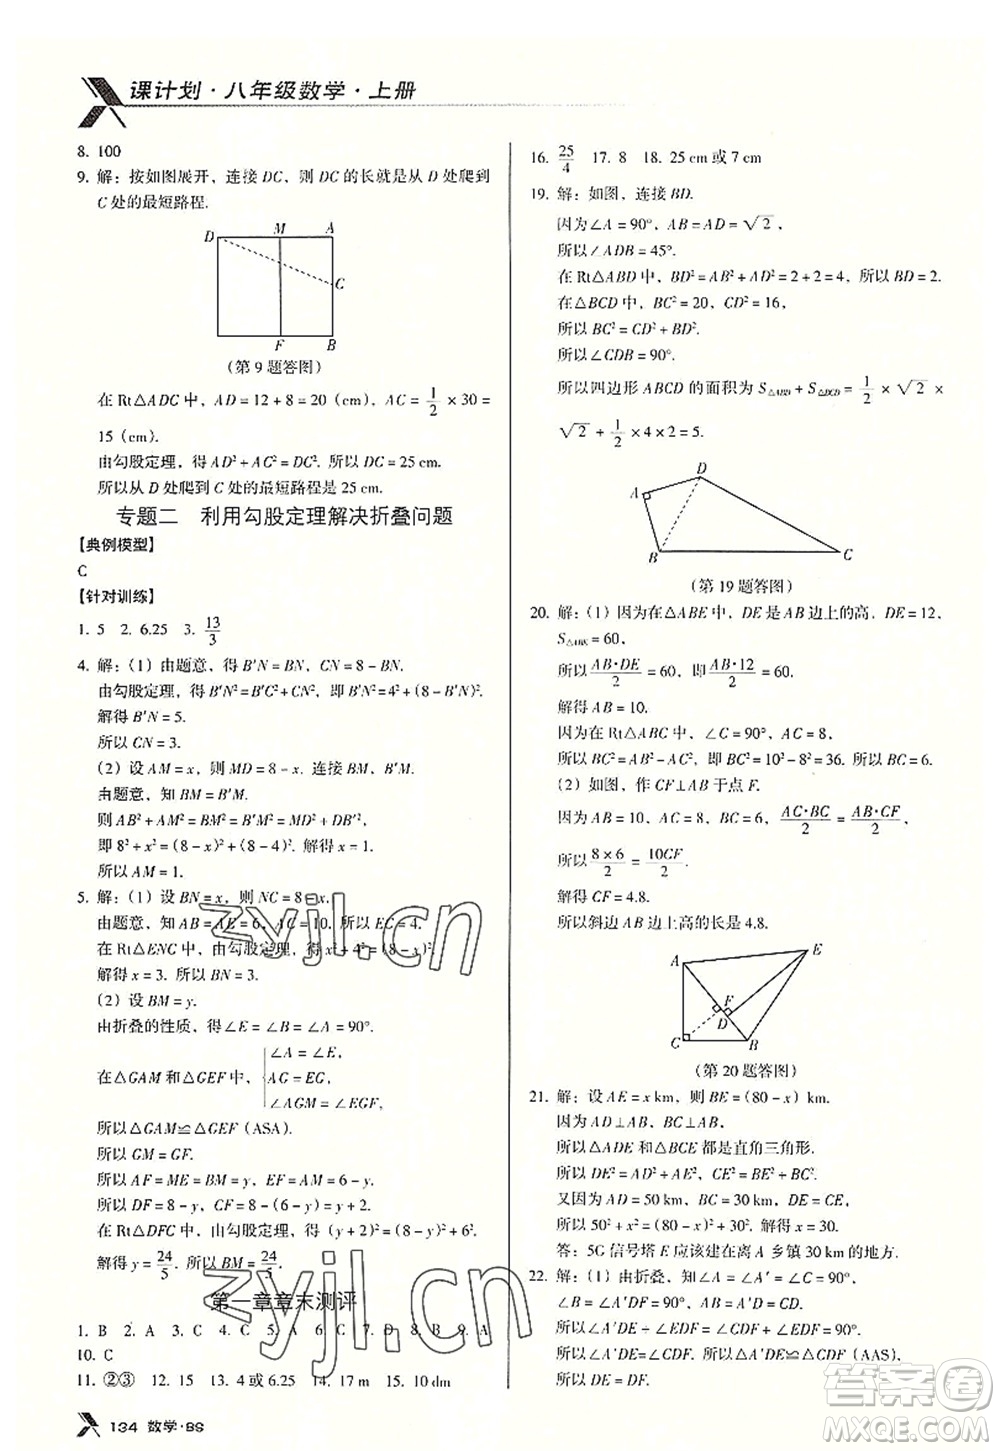 课计划·八年级数学·上册
8. 100
9. 解：按如图展开，连接 DC，则 DC 的长就是从 D 处爬到
C 处的最短路程.
D M A
C
F B
(第 9 题答图)
在 Rt△ADC 中，AD = 12 + 8 = 20 (cm)，AC = 1/2 × 30 =
15 (cm).
由勾股定理，得 AD² + AC² = DC². 所以 DC = 25 cm.
所以从 D 处爬到 C 处的最短路程是 25 cm.
专题二 利用勾股定理解决折叠问题
【典例模型】
C
【针对训练】
1. 5 2. 6.25 3. 13/3
4. 解：(1) 由题意，得 B′N = BN，CN = 8 - BN.
由勾股定理，得 B′N² = B′C² + CN²，即 B′N² = 4² + (8 - B′N)².
解得 B′N = 5.
所以 CN = 3.
(2) 设 AM = x，则 MD = 8 - x. 连接 BM，B′M.
由题意，得 BM = B′M.
则 AB² + AM² = BM² = B′M² = MD² + DB′²，
即 8² + x² = (8 - x)² + 4². 解得 x = 1.
所以 AM = 1.
5. 解：(1) 设 BN = x，则 NC = 8 - x.
由题意，知 AB = AE = 6，AC = 10. 所以 EC = 4.
在 Rt△ENC 中，由勾股定理，得 x² + 4² = (8 - x)².
解得 x = 3. 所以 BN = 3.
(2) 设 BM = y.
由折叠的性质，得∠E = ∠B = ∠A = 90°.
在△GAM 和△GEF 中，{∠A = ∠E，
AG = EG，
∠AGM = ∠EGF，
所以△GAM≌△GEF (ASA).
所以 GM = GF.
所以 AF = ME = BM = y，EF = AM = 6 - y.
所以 DF = 8 - y，CF = 8 - (6 - y) = y + 2.
在 Rt△DFC 中，由勾股定理，得 (y + 2)² = (8 - y)² + 6².
解得 y = 24/5. 所以 BM = 24/5.
第一章章末测评
1. B 2. A 3. C 4. C 5. C 6. B 7. C 8. B 9. A
10. C
11. ②③ 12. 15 13. 4 或 6.25 14. 17 m 15. 10 dm
134 数学·BS
16. 25/4 17. 8 18. 25 cm 或 7 cm
19. 解：如图，连接 BD.
因为∠A = 90°，AB = AD = √2，
所以∠ADB = 45°.
在 Rt△ABD 中，BD² = AB² + AD² = 2 + 2 = 4，所以 BD = 2.
在△BCD 中，BC² = 20，CD² = 16，
所以 BC² = CD² + BD².
所以∠CDB = 90°.
所以四边形 ABCD 的面积为 S△ABD + S△BCD = 1/2 × √2 ×
√2 + 1/2 × 4 × 2 = 5.
D
A
B C
(第 19 题答图)
20. 解：(1) 因为在△ABE 中，DE 是 AB 边上的高，DE = 12，
S△ABE = 60，
所以 AB·DE/2 = 60，即 AB·12/2 = 60.
解得 AB = 10.
因为在 Rt△ABC 中，∠C = 90°，AC = 8，
所以 BC² = AB² - AC²，即 BC² = 10² - 8² = 36. 所以 BC = 6.
(2) 如图，作 CF⊥AB 于点 F.
因为 AB = 10，AC = 8，BC = 6，AC·BC/2 = AB·CF/2，
所以 8×6/2 = 10CF/2.
解得 CF = 4.8.
所以斜边 AB 上高的长是 4.8.
E
A
F
D
C B
(第 20 题答图)
21. 解：设 AE = x km，则 BE = (80 - x) km.
因为 AD⊥AB，BC⊥AB，
所以△ADE 和△BCE 都是直角三角形.
所以 DE² = AD² + AE²，CE² = BE² + BC².
又因为 AD = 50 km，BC = 30 km，DE = CE，
所以 50² + x² = (80 - x)² + 30². 解得 x = 30.
答：5G 信号塔 E 应该建在离 A 乡镇 30 km 的地方.
22. 解：(1) 由折叠，得∠A = ∠A′ = ∠C = 90°，
∠B = ∠A′DF = ∠ADC = 90°.
所以∠A′DE = ∠CDF.
因为 A′D = AB = CD，所以△A′DE≌△CDF (AAS).
所以∠A′DE = ∠CDF. 所以 DE = DF.
zyjl.cn
zyjl.cn
答案圈
MXQE.COM